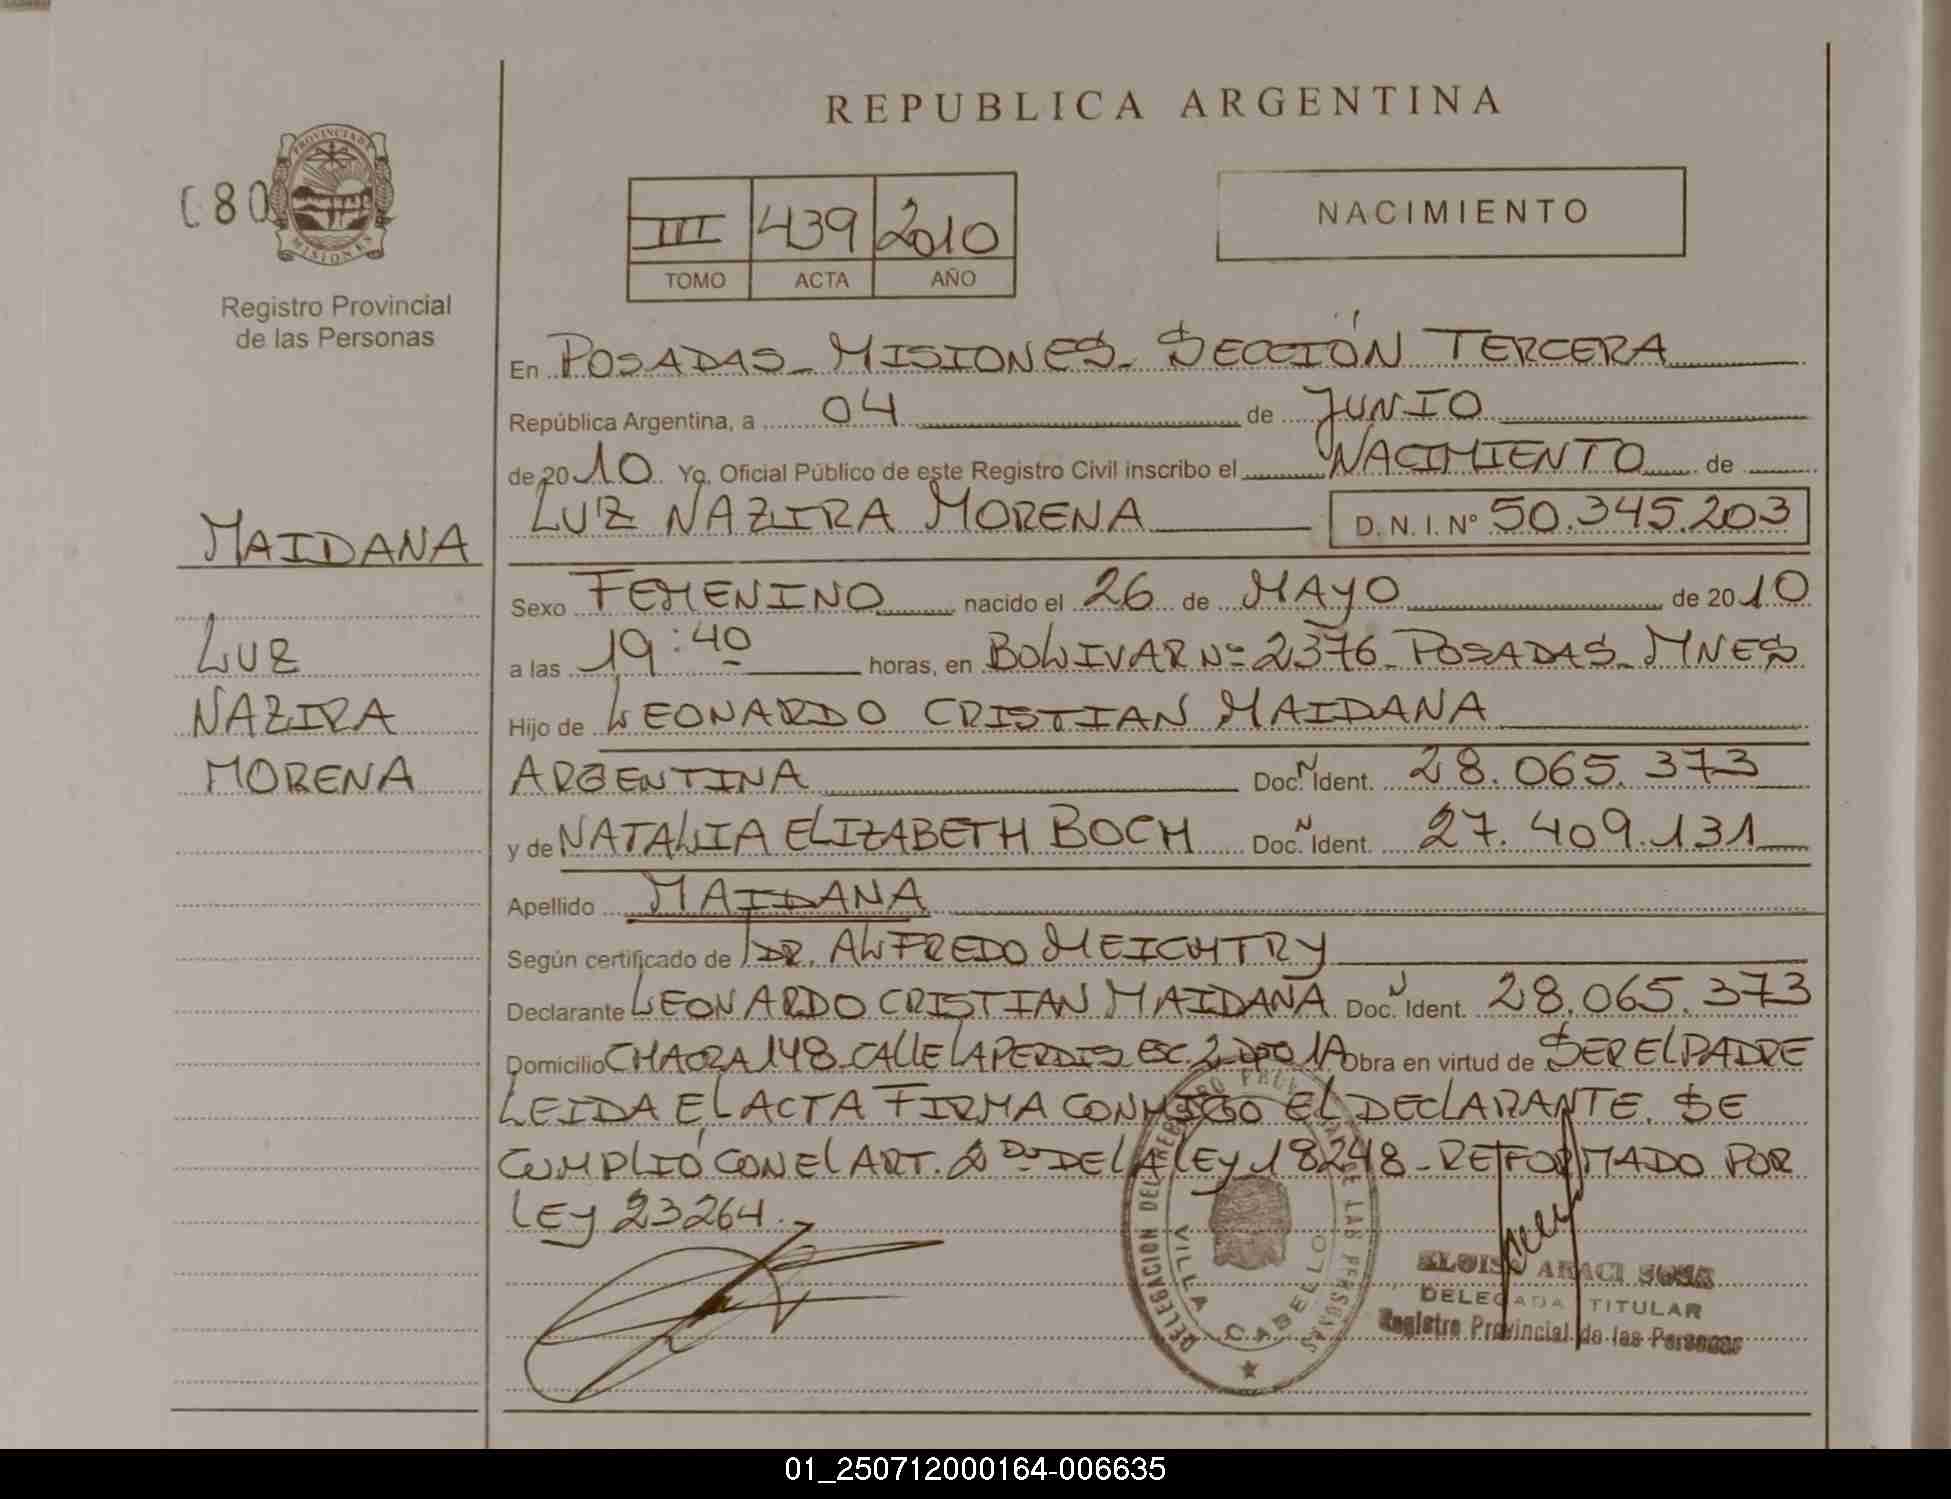 REPUBLICA ARGENTINA
C80
PROVINCIA DE MISIONES
Registro Provincial
de las Personas
III 439 2010
TOMO ACTA AÑO
NACIMIENTO
En POSADAS - MISIONES - SECCIÓN TERCERA
República Argentina, a 04 de JUNIO
de 2010 Yo, Oficial Público de este Registro Civil inscribo el NACIMIENTO de
LUZ NAZIRA MORENA D. N. I. Nº 50.345.203
MAIDANA
LUZ
NAZIRA
MORENA
Sexo FEMENINO nacido el 26 de MAYO de 2010
a las 19:40 horas, en BOLIVAR Nº 2376 - POSADAS - MNES
Hijo de LEONARDO CRISTIAN MAIDANA
ARGENTINA Doc. N Ident. 28.065.373
y de NATALIA ELIZABETH BOCH Doc. N Ident. 27.409.131
Apellido MAIDANA
Según certificado de DR. ALFREDO MEICHTRY
Declarante LEONARDO CRISTIAN MAIDANA Doc. N Ident. 28.065.373
Domicilio CHACRA 148 - CALLE LAPERDIS ESC. 2 DPTO 1A Obra en virtud de SER EL PADRE
LEIDA EL ACTA FIRMA CONMIGO EL DECLARANTE. SE
CUMPLIÓ CON EL ART. 2DO DE LA LEY 18248 - REFORMADO POR
LEY 23264.-
DELEGACION DEL REGISTRO PROVINCIAL DE LAS PERSONAS
VILLA CABELLO
ARACI SOSA
DELEGADA TITULAR
Registro Provincial de las Personas
01_250712000164-006635